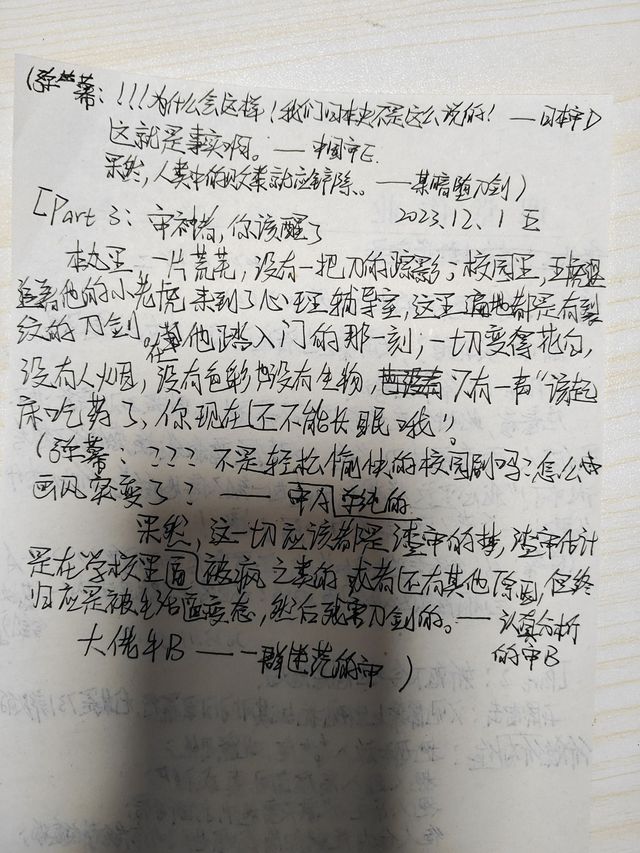 (弹幕:!!!为什么会这样!我们日本史不是这么说的! ——日本审D
这就是事实啊。——中国审E
果然,人类中的败类就应铲除。——某暗堕刀剑)
2023.12.1 五
[Part 3:审神者,你该醒了
本丸里一片荒芜,没有一把刀的踪影;校园里,王虎
追着他的小老虎来到了心理辅导室,这里遍地都是有裂
纹的刀剑。在他踏入门的那一刻,一切变得花白,
没有人烟,没有色彩也没有生物,只有一声“该起
床吃药了,你现在还不能长眠哦!”
(弹幕:???不是轻松愉快的校园剧吗?怎么
画风突变了?——审A 单纯的
果然,这一切应该都是渣审的梦,渣审估计
是在学校里面被疯之类的或者还有其他原因,但终
归应是被生活逼变态,然后就来刀剑的。——认真分析
的审B
大佬牛B ——一群迷茫的审)